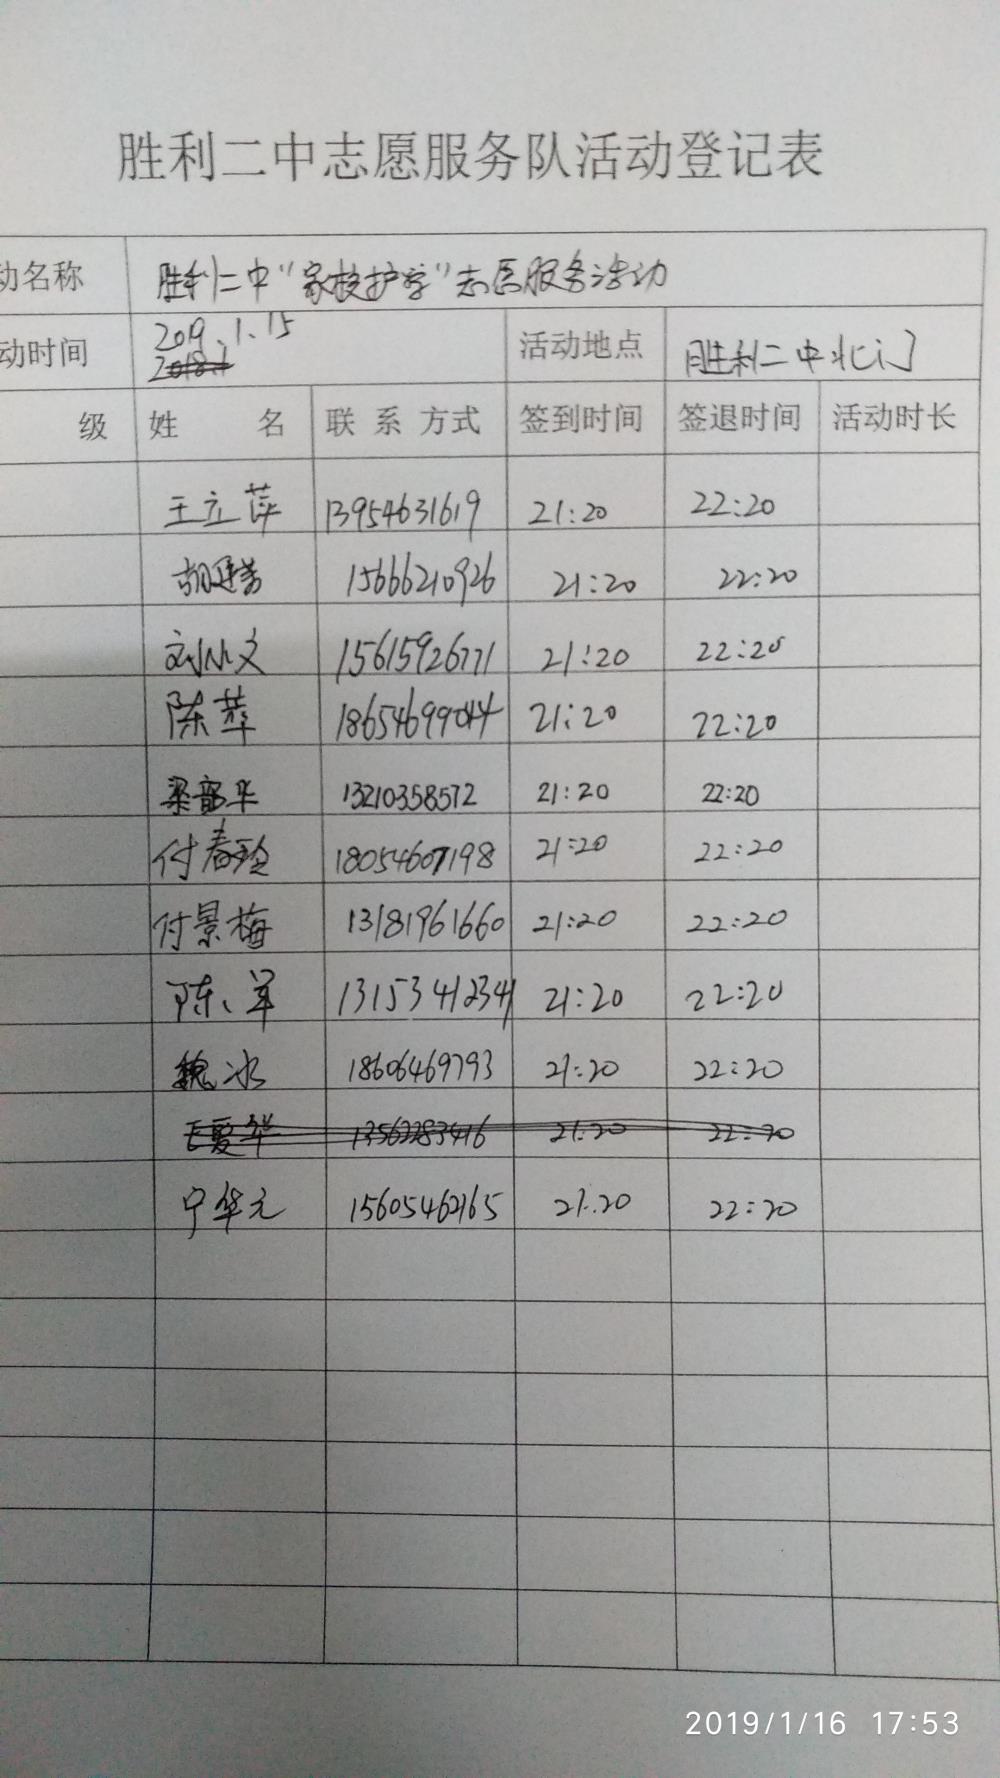 胜利二中志愿服务队活动登记表
动名称 胜利二中"家校护学"志愿服务活动
动时间 2019.1.15 活动地点 胜利二中北门
2018.1
级 姓 名 联系方式 签到时间 签退时间 活动时长
王立萍 13954631619 21:20 22:20
胡延芳 15666210926 21:20 22:20
刘小文 15615926771 21:20 22:20
陈苹 18654699044 21:20 22:20
梁韶华 13210358572 21:20 22:20
付春玲 18054607198 21:20 22:20
付景梅 13181961660 21:20 22:20
陈军 13153412341 21:20 22:20
魏冰 18606469793 21:20 22:20
王爱华 13562283416 21:20 22:20
宁华元 15605462165 21:20 22:20
2019/1/16 17:53